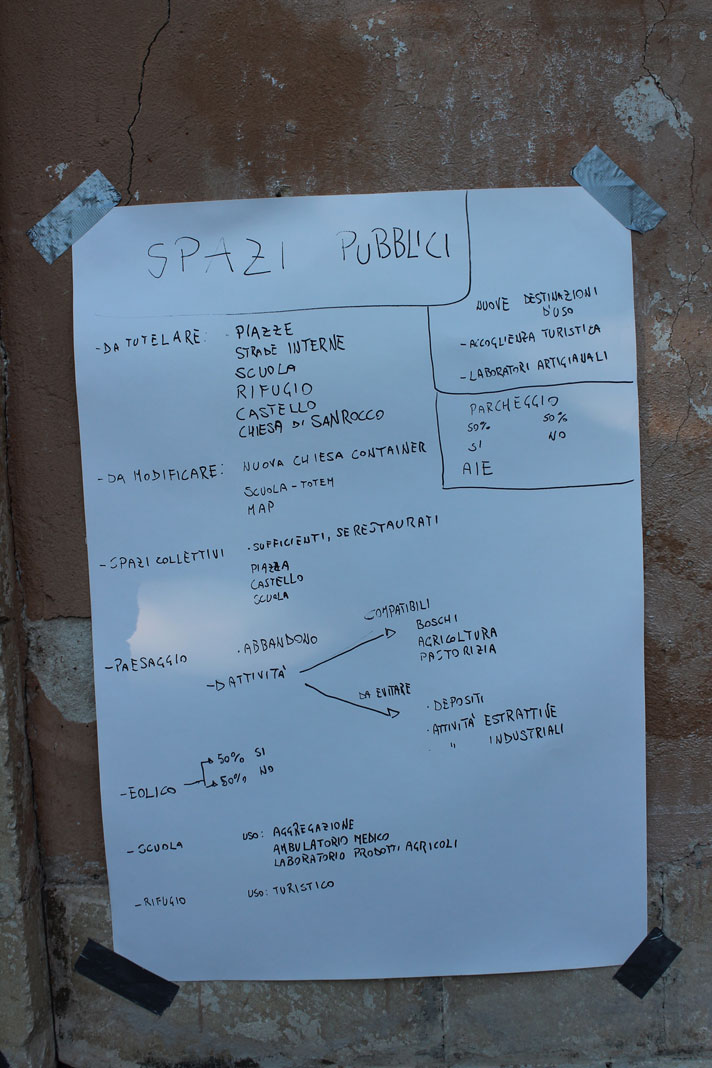 SPAZI PUBBLICI
NUOVE DESTINAZIONI
D'USO
- ACCOGLIENZA TURISTICA
- LABORATORI ARTIGIANALI
PARCHEGGIO
50% 50%
SI NO
AIE
- DA TUTELARE: · PIAZZE
STRADE INTERNE
SCUOLA
RIFUGIO
CASTELLO
CHIESA DI SAN ROCCO
- DA MODIFICARE: NUOVA CHIESA CONTAINER
SCUOLA - TOTEM
MAP
- SPAZI COLLETTIVI · SUFFICIENTI, SE RESTAURATI
PIAZZA
CASTELLO
SCUOLA
- PAESAGGIO · ABBANDONO
- D ATTIVITÀ
COMPATIBILI
BOSCHI
AGRICOLTURA
PASTORIZIA
DA EVITARE
· DEPOSITI
· ATTIVITÀ ESTRATTIVE
· " INDUSTRIALI
- EOLICO
50% SI
50% NO
- SCUOLA USO: AGGREGAZIONE
AMBULATORIO MEDICO
LABORATORIO PRODOTTI AGRICOLI
- RIFUGIO USO: TURISTICO